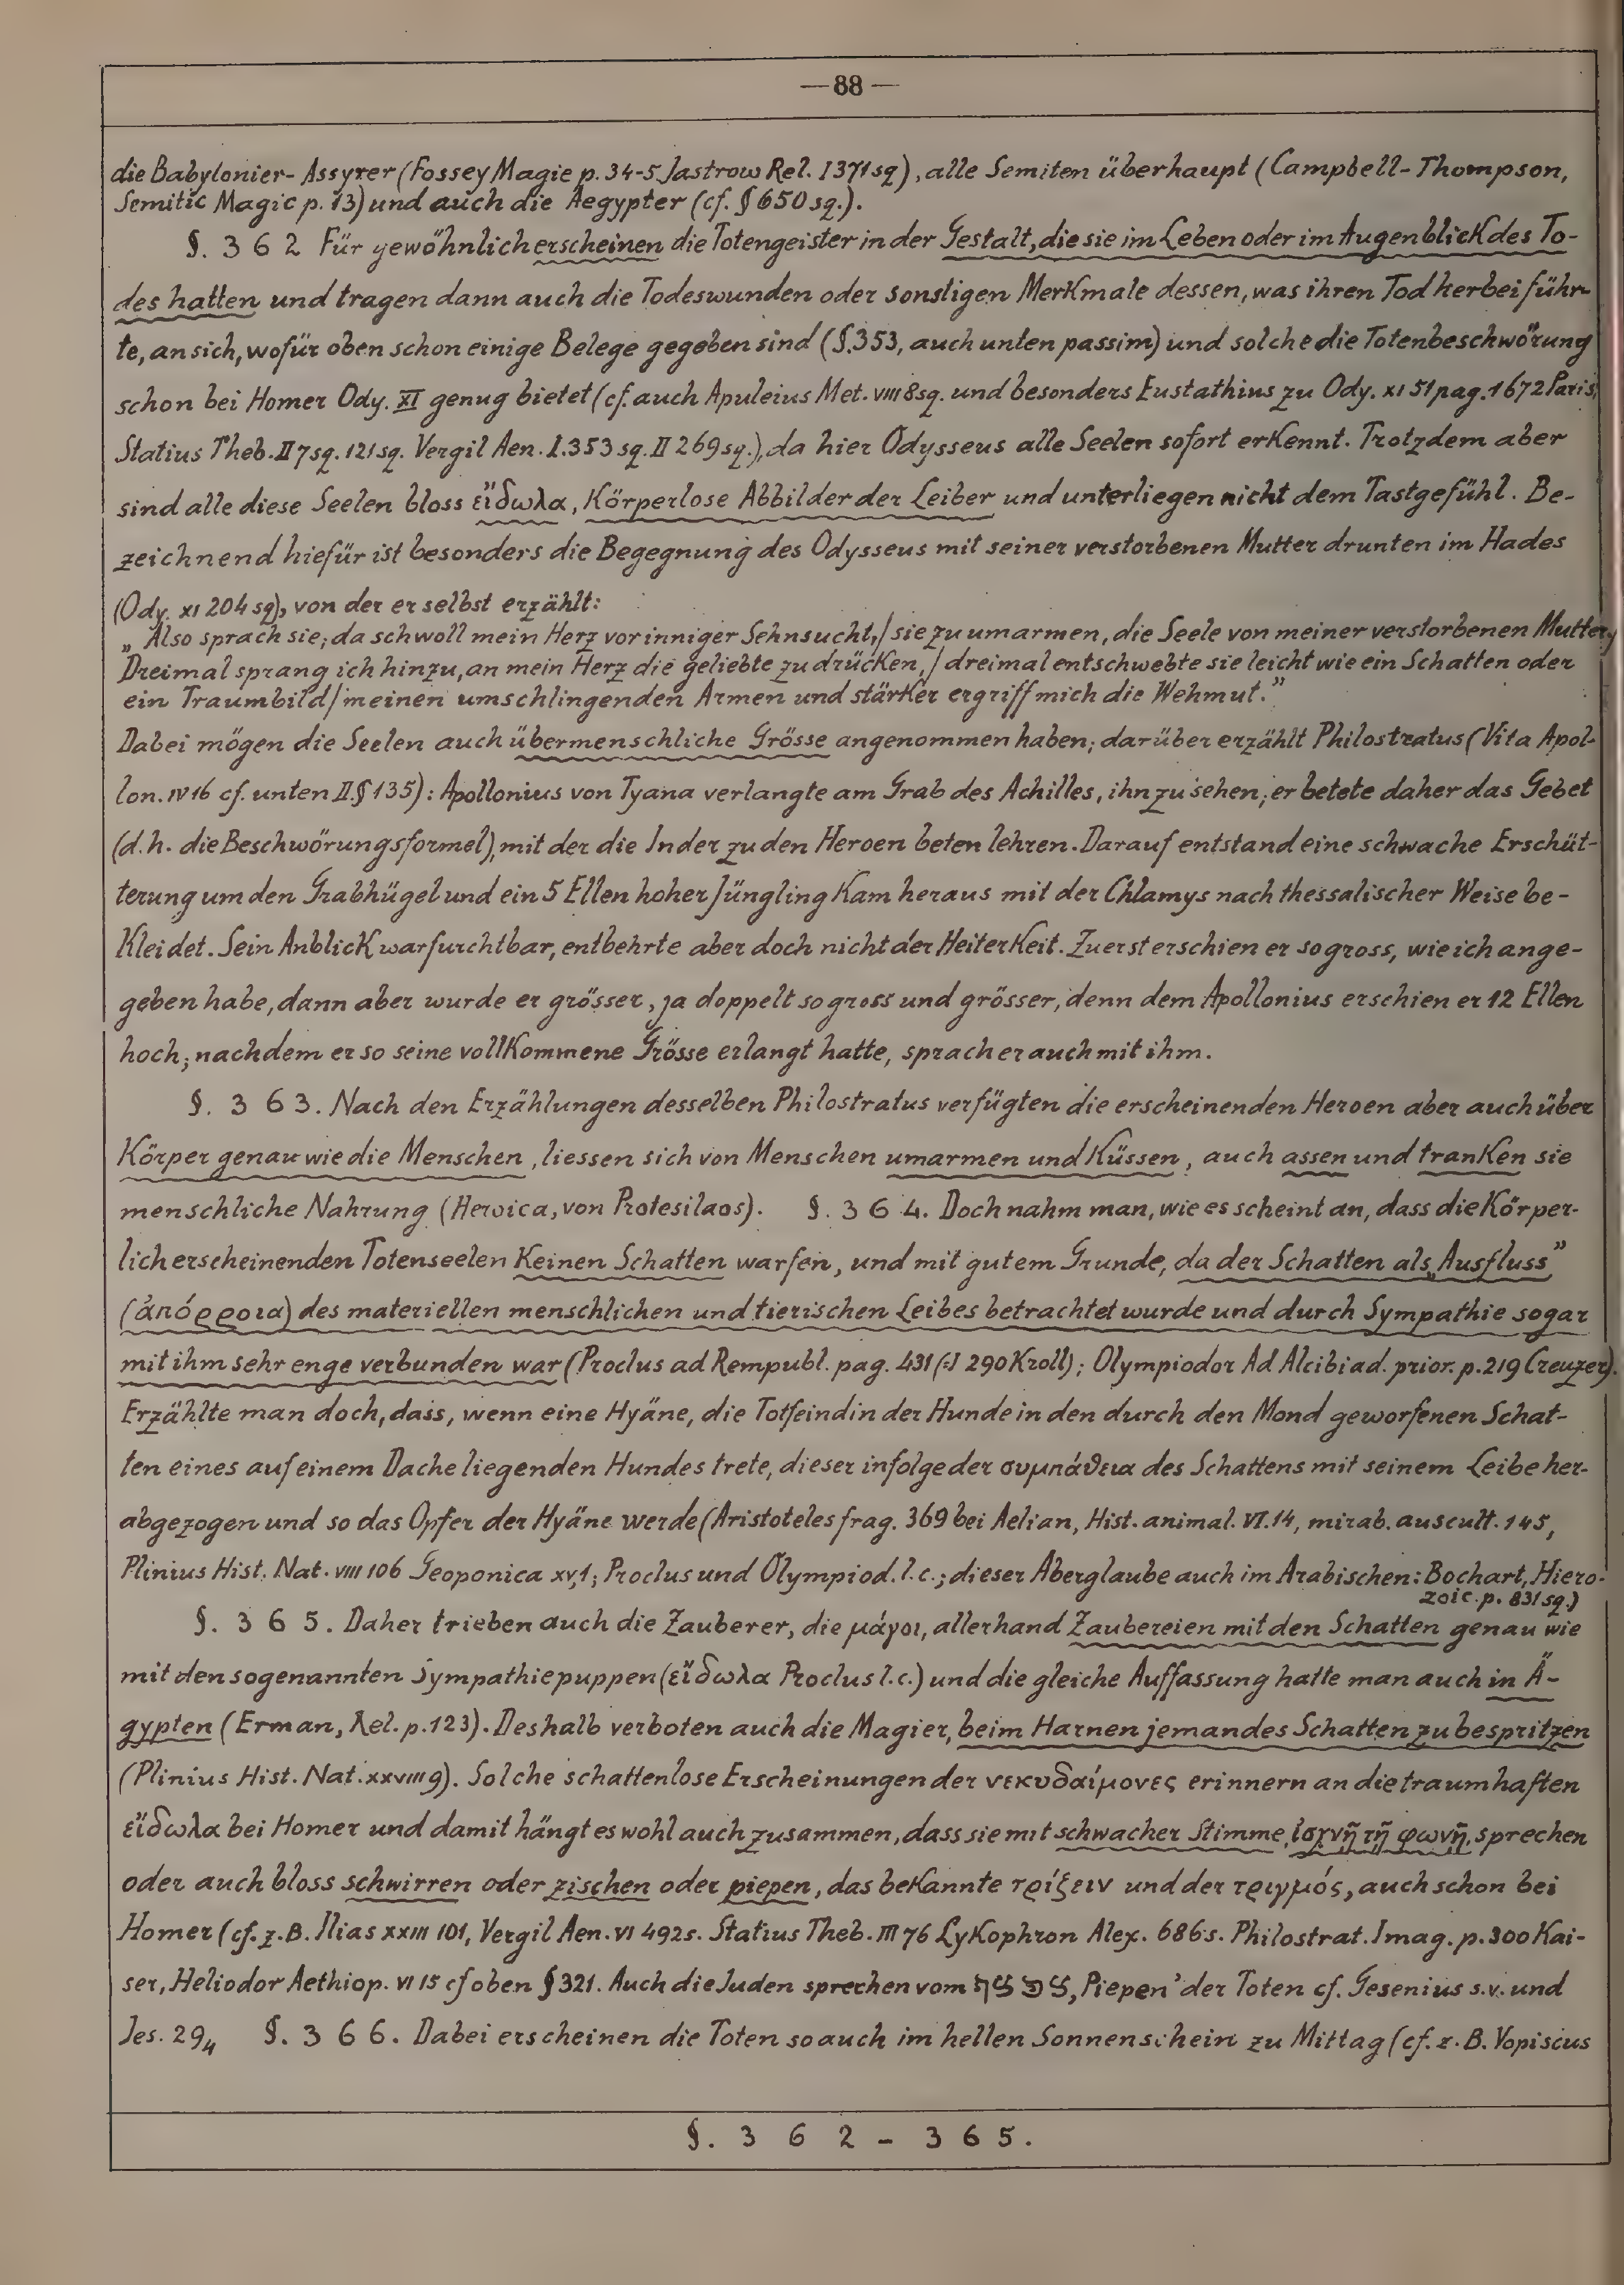 —88—
die Babylonier-Assyrer (Fossey Magie p. 34-5 Jastrow Rel. I 371 sq), alle Semiten überhaupt (Campbell-Thompson,
Semitic Magic p. 13) und auch die Aegypter (cf. § 650 sq.).
§. 362 Für gewöhnlich erscheinen die Totengeister in der Gestalt, die sie im Leben oder im Augenblick des To-
des hatten und tragen dann auch die Todeswunden oder sonstigen Merkmale dessen, was ihren Tod herbeiführ-
te, an sich, wofür oben schon einige Belege gegeben sind (§.353, auch unten passim) und solche die Totenbeschwörung
schon bei Homer Ody. XI genug bietet (cf. auch Apuleius Met. VIII 8 sq. und besonders Eustathius zu Ody. XI 51 pag. 1672 Paris,
Statius Theb. II 7 sq. 121 sq. Vergil Aen. I.353 sq. II 269 sq.), da hier Odysseus alle Seelen sofort erkennt. Trotzdem aber
sind alle diese Seelen bloss εἴδωλα, Körperlose Abbilder der Leiber und unterliegen nicht dem Tastgefühl. Be-
zeichnend hiefür ist besonders die Begegnung des Odysseus mit seiner verstorbenen Mutter drunten im Hades
(Ody. XI 204 sq), von der er selbst erzählt:
„Also sprach sie; da schwoll mein Herz vor inniger Sehnsucht,/ sie zu umarmen, die Seele von meiner verstorbenen Mutter,/
Dreimal sprang ich hinzu, an mein Herz die geliebte zu drücken,/ dreimal entschwebte sie leicht wie ein Schatten oder
ein Traumbild/ meinen umschlingenden Armen und stärker ergriff mich die Wehmut.”
Dabei mögen die Seelen auch übermenschliche Grösse angenommen haben; darüber erzählt Philostratus (Vita Apol-
lon. IV 16 cf. unten II.§ 135): Apollonius von Tyana verlangte am Grab des Achilles, ihn zu sehen; er betete daher das Gebet
(d.h. die Beschwörungsformel), mit der die Inder zu den Heroen beten lehren. Darauf entstand eine schwache Erschüt-
terung um den Grabhügel und ein 5 Ellen hoher Jüngling kam heraus mit der Chlamys nach thessalischer Weise be-
kleidet. Sein Anblick war furchtbar, entbehrte aber doch nicht der Heiterkeit. Zuerst erschien er so gross, wie ich ange-
geben habe, dann aber wurde er grösser, ja doppelt so gross und grösser, denn dem Apollonius erschien er 12 Ellen
hoch; nachdem er so seine vollkommene Grösse erlangt hatte, sprach er auch mit ihm.
§. 363. Nach den Erzählungen desselben Philostratus verfügten die erscheinenden Heroen aber auch über
Körper genau wie die Menschen, liessen sich von Menschen umarmen und küssen, auch assen und tranken sie
menschliche Nahrung (Heroica, von Protesilaos). §. 364. Doch nahm man, wie es scheint an, dass die körper-
lich erscheinenden Totenseelen keinen Schatten warfen, und mit gutem Grunde, da der Schatten als „Ausfluss”
(ἀπόρροια) des materiellen menschlichen und tierischen Leibes betrachtet wurde und durch Sympathie sogar
mit ihm sehr enge verbunden war (Proclus ad Rempubl. pag. 431 (=I 290 Kroll); Olympiodor Ad Alcibiad. prior. p. 219 Creuzer).
Erzählte man doch, dass, wenn eine Hyäne, die Totfeindin der Hunde in den durch den Mond geworfenen Schat-
ten eines auf einem Dache liegenden Hundes trete, dieser infolge der συμπάθεια des Schattens mit seinem Leibe her-
abgezogen und so das Opfer der Hyäne werde (Aristoteles frag. 369 bei Aelian, Hist. animal. VI.14, mirab. auscult. 145,
Plinius Hist. Nat. VIII 106 Geoponica XV,1; Proclus und Olympiod. l.c.; dieser Aberglaube auch im Arabischen: Bochart, Hiero-
zoic. p. 831 sq.)
§. 365. Daher trieben auch die Zauberer, die μάγοι, allerhand Zaubereien mit den Schatten genau wie
mit den sogenannten Sympathiepuppen (εἴδωλα Proclus l.c.) und die gleiche Auffassung hatte man auch in Ä-
gypten (Erman, Rel. p. 123). Deshalb verboten auch die Magier, beim Harnen jemandes Schatten zu bespritzen
(Plinius Hist. Nat. XXVIII 9). Solche schattenlose Erscheinungen der νεκυδαίμονες erinnern an die traumhaften
εἴδωλα bei Homer und damit hängt es wohl auch zusammen, dass sie mit schwacher Stimme, ἰσχνῇ τῇ φωνῇ, sprechen
oder auch bloss schwirren oder zischen oder piepen, das bekannte τρίζειν und der τριγμός, auch schon bei
Homer (cf. z.B. Ilias XXIII 101, Vergil Aen. VI 492 s. Statius Theb. III 76 Lykophron Alex. 686 s. Philostrat. Imag. p. 300 Kai-
ser, Heliodor Aethiop. VI 15 cf oben § 321. Auch die Juden sprechen vom צפצף, Piepen' der Toten cf. Gesenius s.v. und
Jes. 29₄ §. 366. Dabei erscheinen die Toten so auch im hellen Sonnenschein zu Mittag (cf. z. B. Vopiscus
§. 362-365.